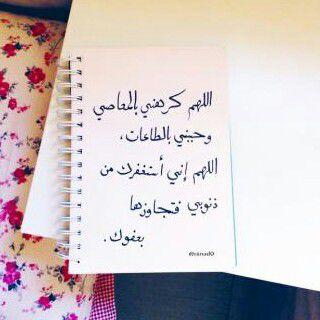 اللهم كرهني بالمعاصي
وحببني بالطاعات،
اللهم إني أستغفرك من
ذنوبي فتجاوزها
بعفوك.